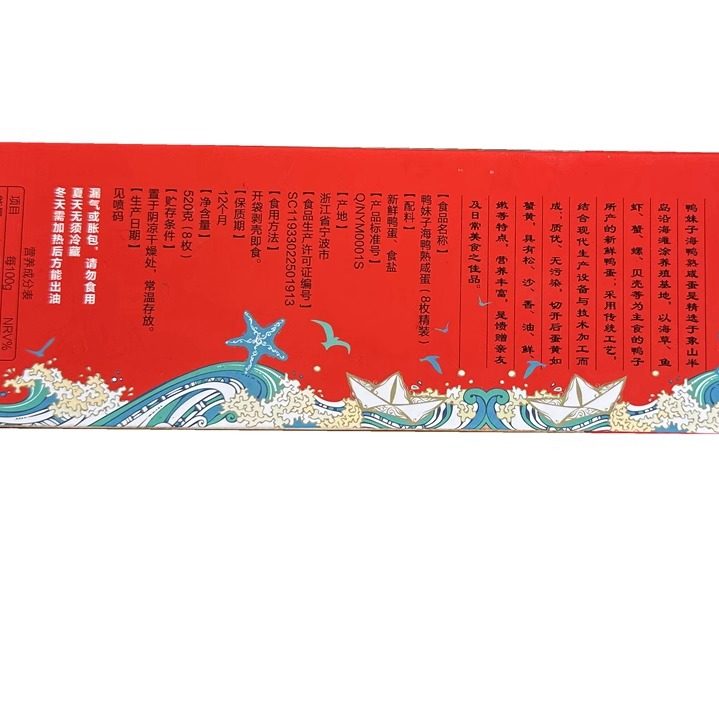 鸭妹子海鸭熟咸蛋是精选于象山半
岛沿海滩涂养殖基地，以海草、鱼
虾、蟹、螺、贝壳等为主食的鸭子
所产的新鲜鸭蛋；采用传统工艺，
结合现代生产设备与技术加工而
成；质优、无污染。切开后蛋黄如
蟹黄，具有松、沙、香、油、鲜、
嫩等特点，营养丰富，是馈赠亲友
及日常美食之佳品。
【食品名称】
鸭妹子海鸭熟咸蛋（8枚精装）
【配料】
新鲜鸭蛋、食盐
【产品标准号】
Q/NYM0001S
【产地】
浙江省宁波市
【食品生产许可证编号】
SC11933022501913
【食用方法】
开袋剥壳即食。
【保质期】
12个月
【净含量】
520克（8枚）
【贮存条件】
置于阴凉干燥处，常温存放。
【生产日期】
见喷码
漏气或胀包，请勿食用
夏天无须冷藏
冬天需加热后方能出油
营养成分表
项目 每100g NRV%